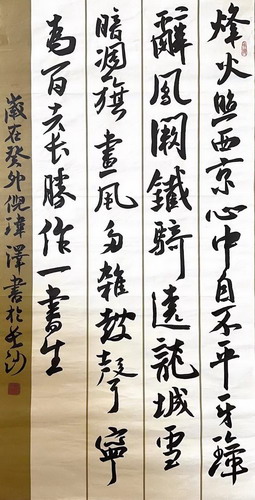 烽火照西京心中自不平牙璋
辭鳳闕鐵騎遶龍城雪
暗凋旗畫風多雜鼓聲寧
為百夫長勝作一書生
歲在癸卯倪瑋澤書於長沙